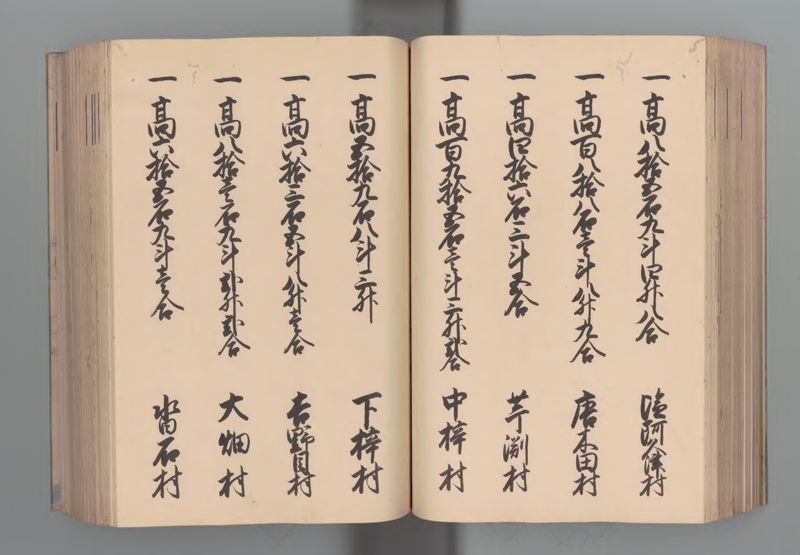 一 高八拾五石九斗四升八合
一 高百八拾八石壱斗八升九合 唐木田村
一 高四拾六石三斗五合 芋渕村
一 高百九拾五石壱斗三升弐合 中梓村
一 高五拾九石八斗三升 下梓村
一 高六拾三石五斗八升壱合 吉野目村
一 高八拾壱石九斗弐升弐合 大畑村
一 高六拾五石九斗壱合 沓石村